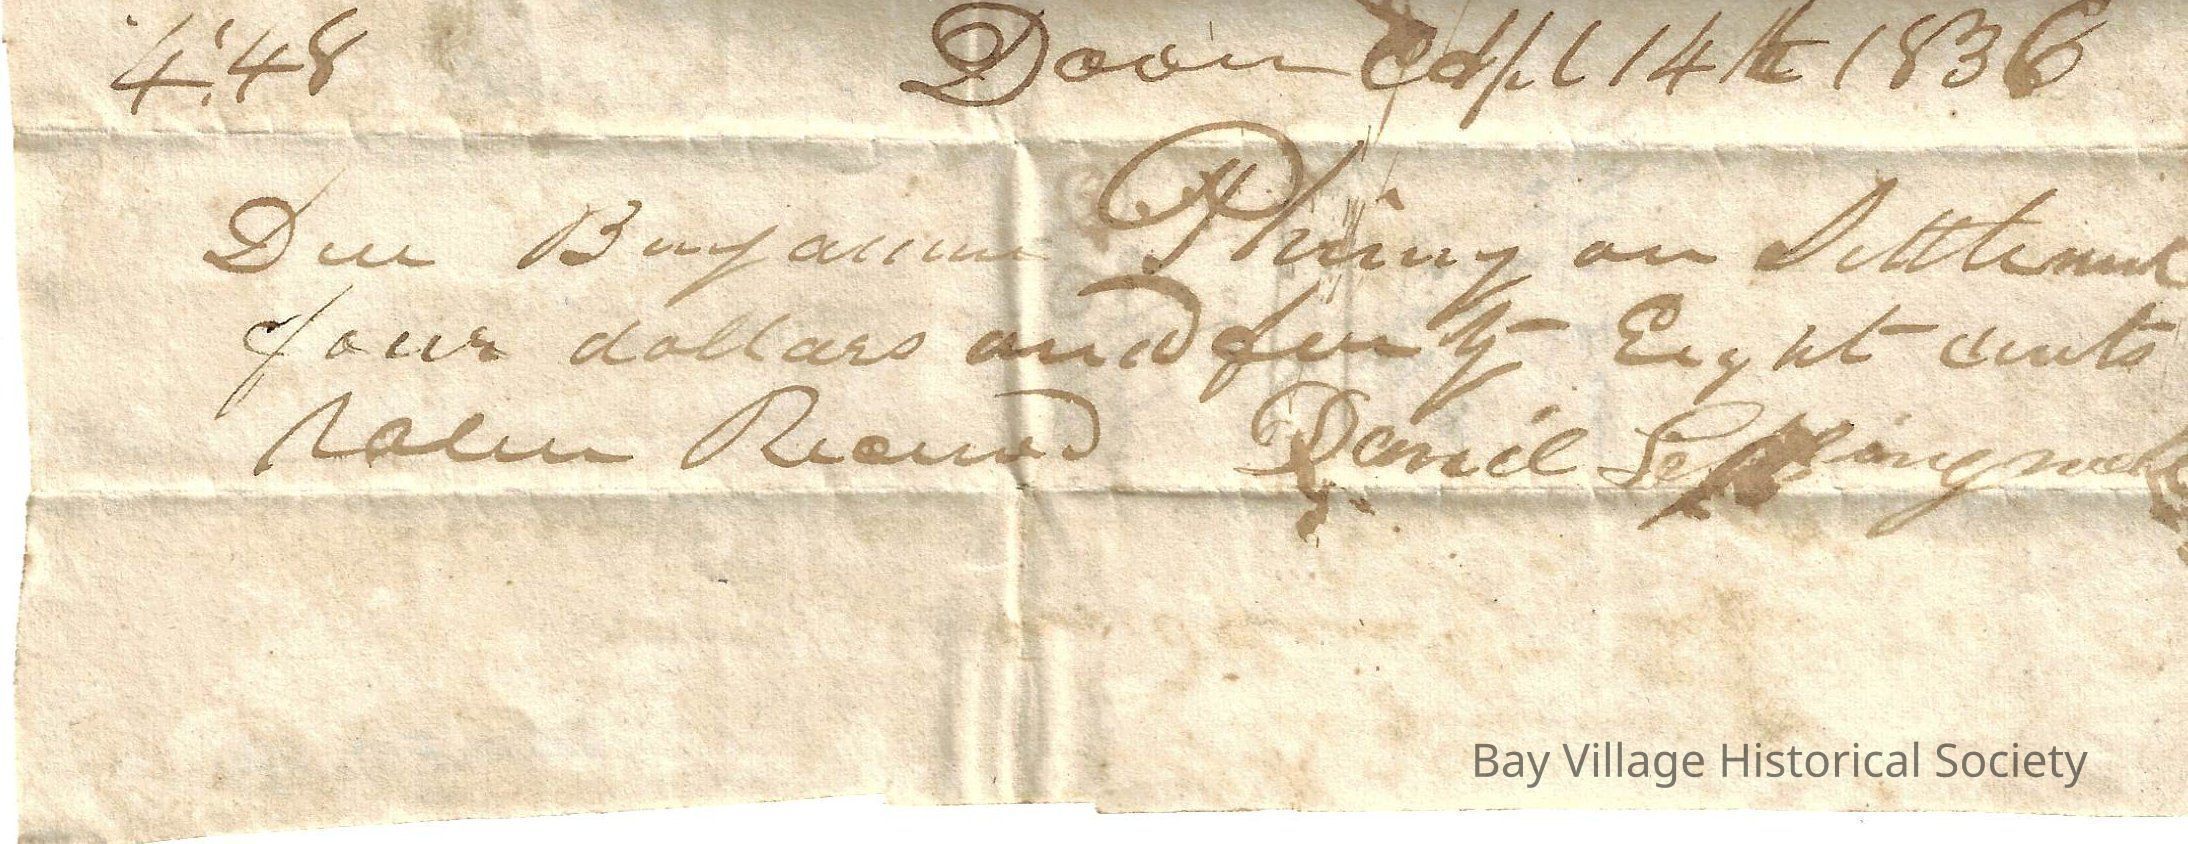 4.48 Dover Apl 14th 1836
Due Benjamin Phiny on Settlement
four dollars and forty Eight cents
Value Received Daniel
Bay Village Historical Society